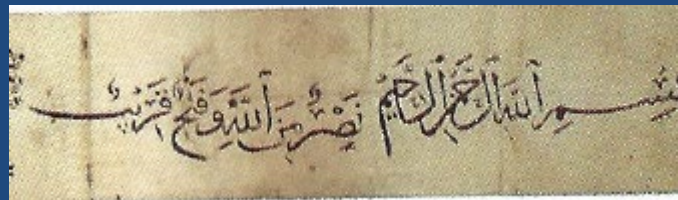 بِسْمِ ٱللَّهِ ٱلرَّحْمَٰنِ ٱلرَّحِيمِ نَصْرٌ مِّنَ ٱللَّهِ وَفَتْحٌ قَرِيبٌ